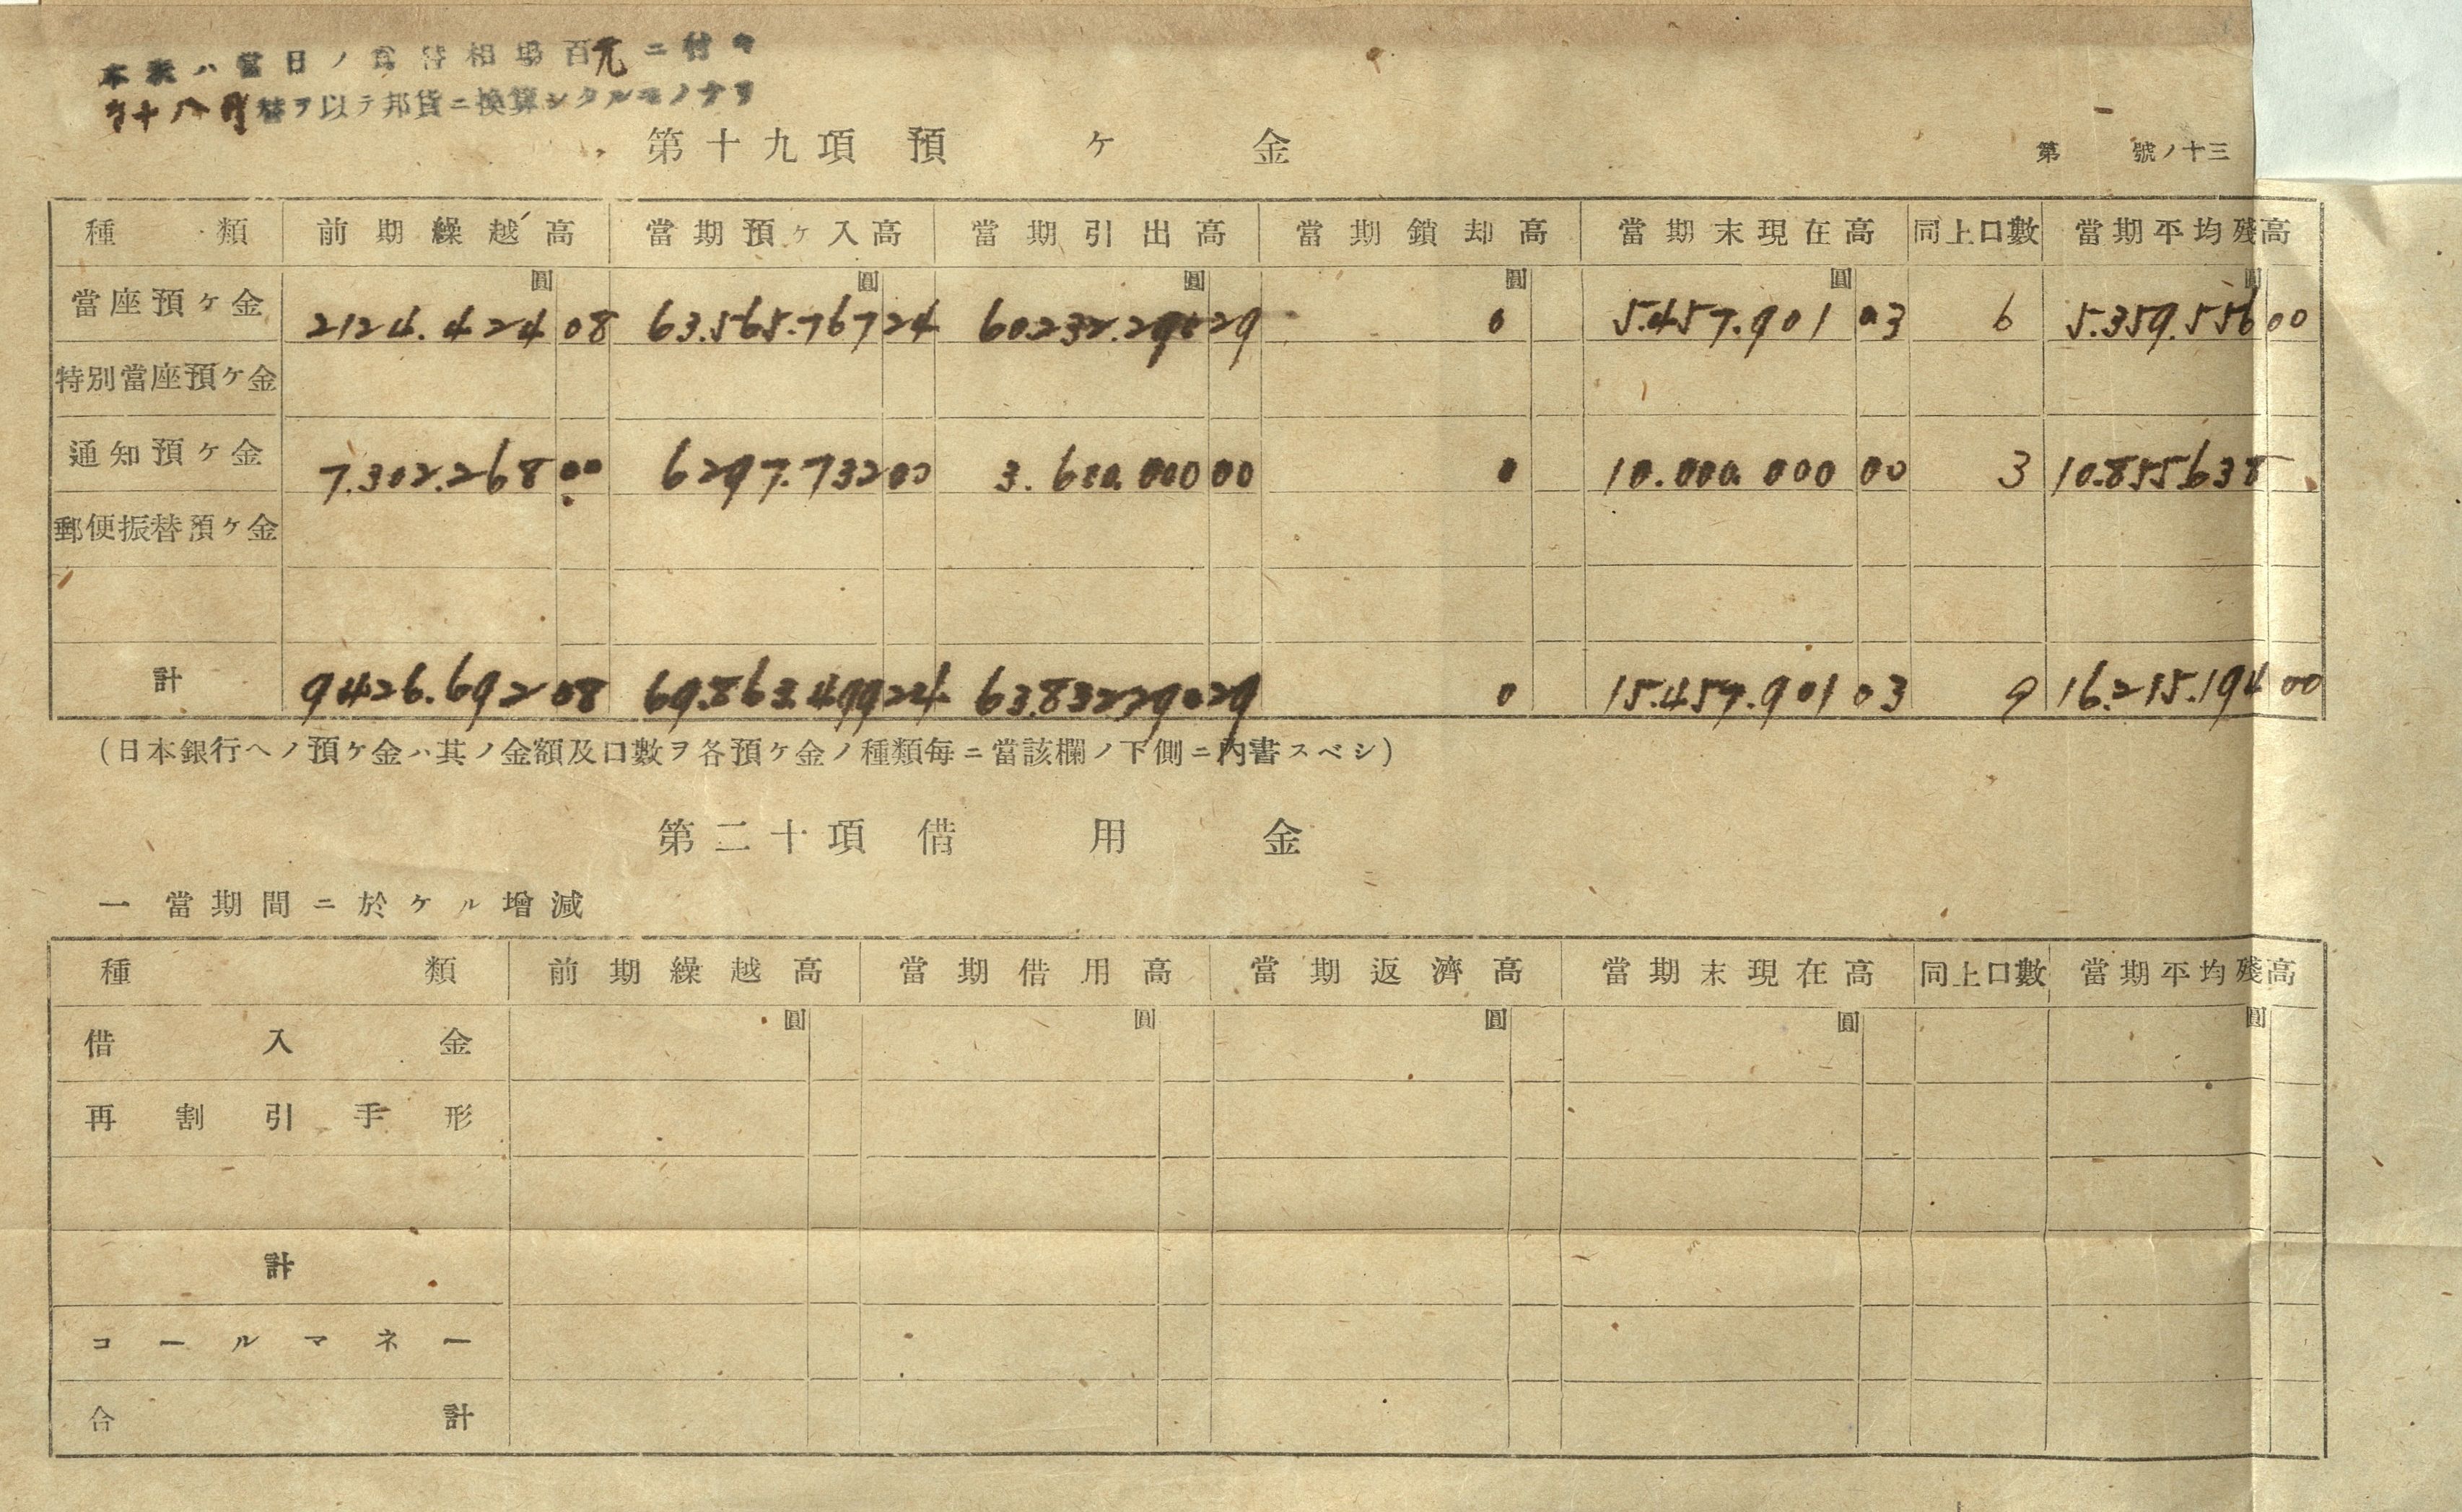 本表ハ當日ノ爲替相場百元ニ付キ
十八円替ヲ以テ邦貨ニ換算シタルモノナリ
第十九項 預ヶ金
第 號ノ十三
種類 前期繰越高 當期預ヶ入高 當期引出高 當期鎖却高 當期末現在高 同上口數 當期平均殘高
圓 圓 圓 圓 圓 圓
當座預ヶ金 2124.424 08 63.565.767 24 60.232.290 29 0 5.457.901 03 6 5.359.556 00
特別當座預ヶ金
通知預ヶ金 7.302.268 00 6297.732 00 3.600.000 00 0 10.000.000 00 3 10.855.638
郵便振替預ヶ金
計 9426.692 08 69.863.499 24 63.832290 29 0 15.457.901 03 9 16.215.194 00
(日本銀行ヘノ預ヶ金ハ其ノ金額及口數ヲ各預ヶ金ノ種類每ニ當該欄ノ下側ニ內書スベシ)
第二十項 借用金
一 當期間ニ於ケル增減
種類 前期繰越高 當期借用高 當期返濟高 當期末現在高 同上口數 當期平均殘高
圓 圓 圓 圓 圓
借入金
再割引手形
計
コールマネー
合計